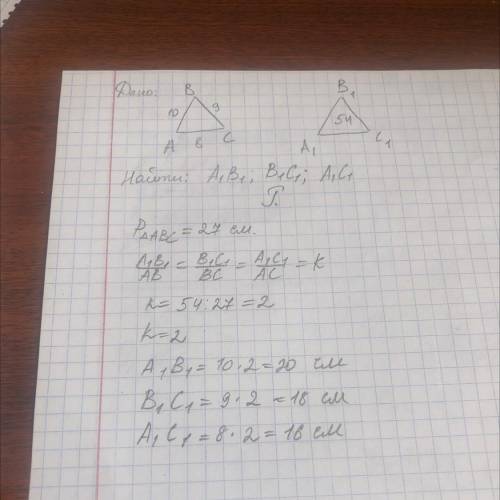 Дано:
B
10 9
A 6 C
B₁
54
A₁ C₁
Найти: A₁B₁; B₁C₁; A₁C₁
P△ABC = 27 см.
A₁B₁/AB = B₁C₁/BC = A₁C₁/AC = K
K = 54 : 27 = 2
K = 2
A₁B₁ = 10 · 2 = 20 см
B₁C₁ = 9 · 2 = 18 см
A₁C₁ = 8 · 2 = 16 см